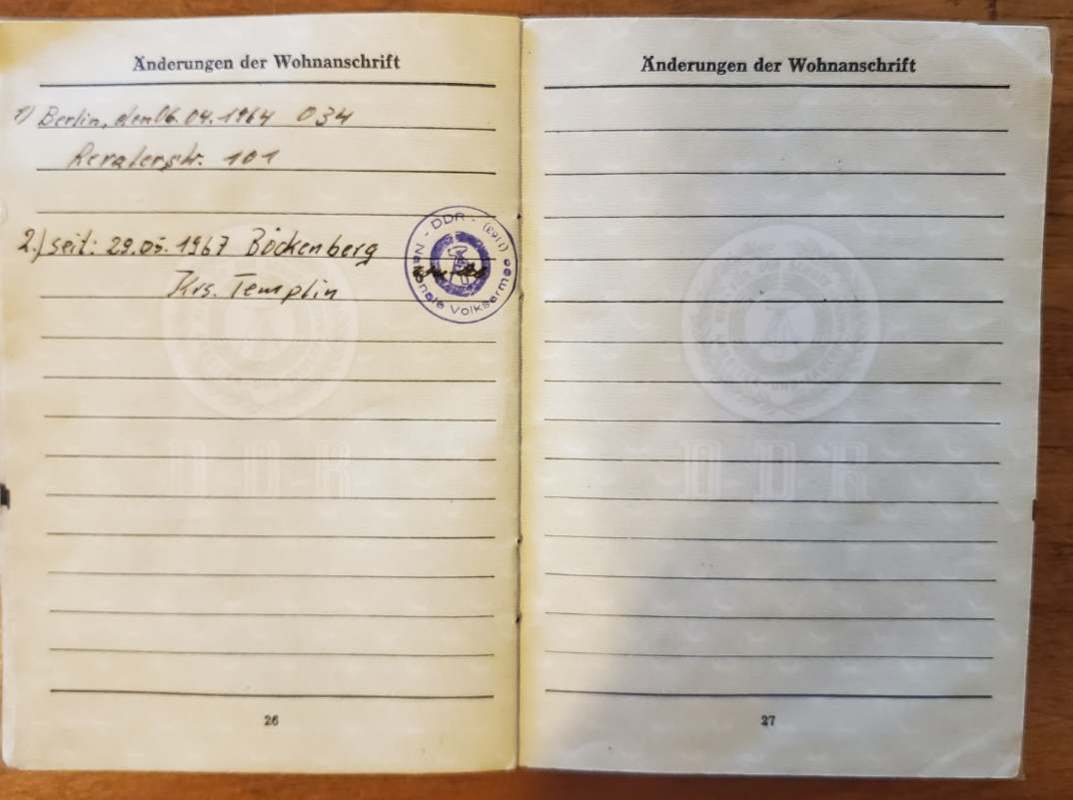 Änderungen der Wohnanschrift
1) Berlin, den 06.04.1964 034
Revalerstr. 101
2.) seit: 29.05.1967 Böckenberg
Krs. Templin
- DDR - (1103)
Nationale Volksarmee
DDR
26
Änderungen der Wohnanschrift
DDR
27